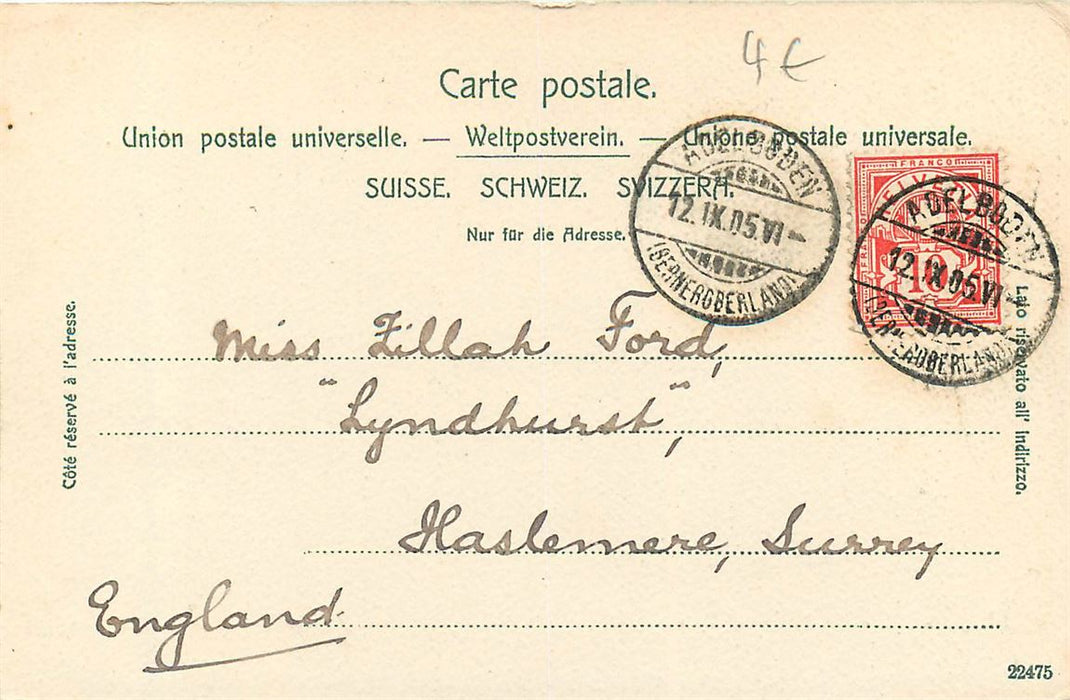 4 €
Carte postale.
Union postale universelle. — Weltpostverein. — Unione postale universale.
SUISSE. SCHWEIZ. SVIZZERA.
Nur für die Adresse.
ADELBODEN
12.IX.05.VI
(BERNEROBERLAND)
FRANCO
HELVETIA
10
ADELBODEN
12.IX.05.VI
(BERNEROBERLAND)
Côté réservé à l'adresse.
Lato riservato all' indirizzo.
Miss Zillah Ford,
"Lyndhurst",
Haslemere, Surrey
England.
22475